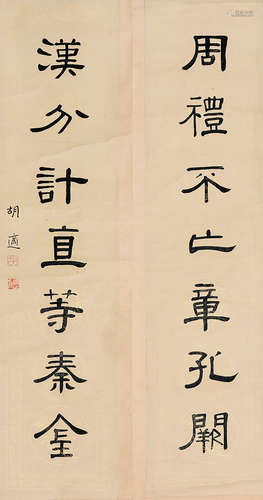 周禮不亡章孔闕
漢分計直等秦金
胡適